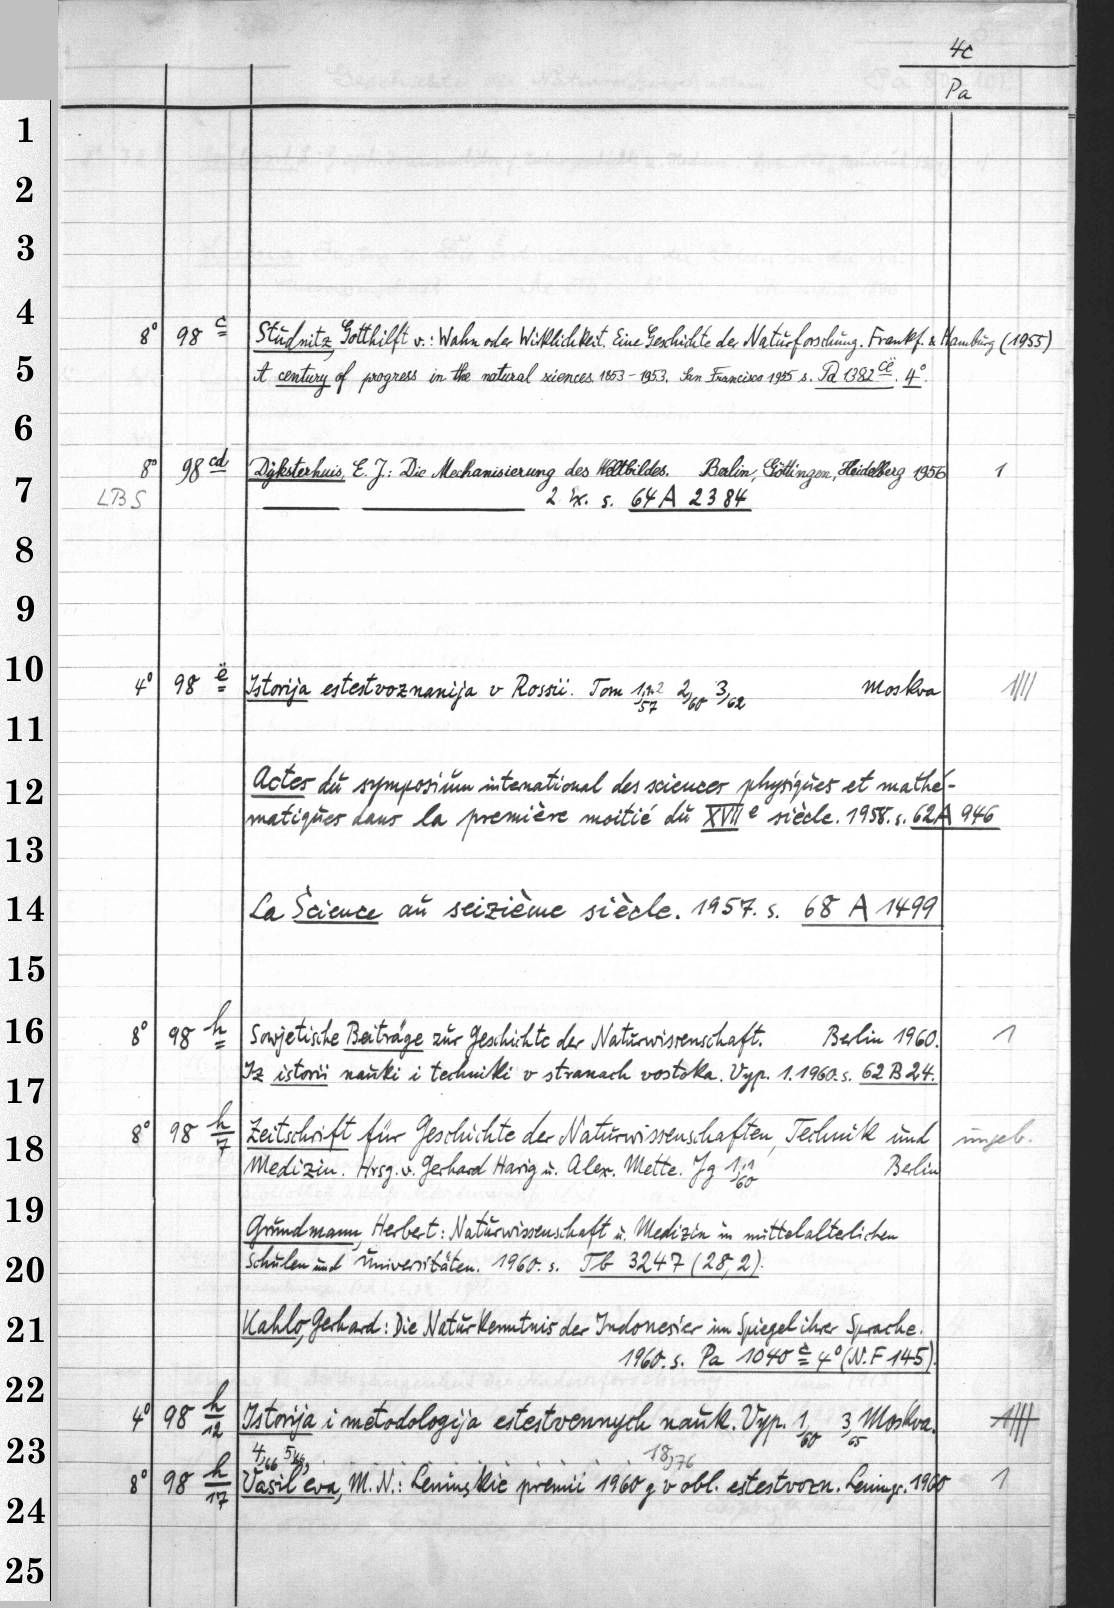 4c
Pa
1
2
3
4
8° 98 c Studnitz, Gotthilft v.: Wahn oder Wirklichkeit. Eine Geschichte der Naturforschung. Frankf. & Hamburg (1955)
5
A century of progress in the natural sciences 1853-1953. San Francisco 1955 s. Pa 1382 cë. 4°.
6
8° 98 cd Dijksterhuis, E. J.: Die Mechanisierung des Weltbildes. Berlin, Göttingen, Heidelberg 1956 1
7
LBS 2 Ex. s. 64 A 2384
8
9
10
4° 98 ë Istorija estestvoznanija v Rossii. Tom 1,1.2/57 2/60 3/62 Moskva
11
12
Actes du symposium international des sciences physiques et mathé-
matiques dans la première moitié du XVII e siècle. 1958. s. 62 A 946
13
14
La Science au seizième siècle. 1957. s. 68 A 1499
15
16
8° 98 h Sowjetische Beiträge zur Geschichte der Naturwissenschaft. Berlin 1960. 1
Iz istorii nauki i techniki v stranach vostoka. Vyp. 1. 1960. s. 62 B 24.
17
8° 98 h/7 Zeitschrift für Geschichte der Naturwissenschaften, Technik und ungeb.
18
Medizin. Hrsg. v. Gerhard Harig u. Alex. Mette. Jg 1,1/60 Berlin
19
Grundmann, Herbert: Naturwissenschaft u. Medizin in mittelalterlichen
20
Schulen und Universitäten. 1960. s. Tb 3247 (28,2).
21
Kahlo, Gerhard: Die Naturkenntnis der Indonesier im Spiegel ihrer Sprache.
1960. s. Pa 1040 c 4° (N.F 145).
22
4° 98 h/12 Istorija i metodologija estestvennych nauk. Vyp. 1/60 3/65 Moskva.
23
4/66 18/76
8° 98 h/17 Vasil'eva, M. N.: Leninskie premii 1960 g v obl. estestvozn. Leningr. 1960 1
24
25